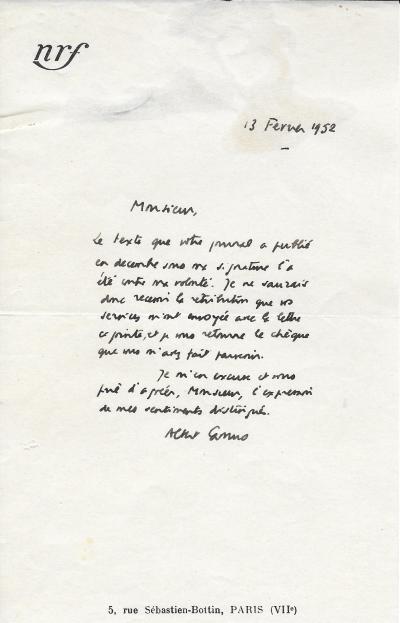 nrf
13 Février 1952
Monsieur,
Le texte que votre journal a publié
en decembre sous ma signature l'a
été contre ma volonté. Je ne saurais
donc recevoir la retribution que vos
services m'ont envoyée avec la lettre
ci jointe, et je vous retourne le chèque
que vous m'avez fait parvenir.
Je m'en excuse et vous
prie d'agréer, Monsieur, l'expression
de mes sentiments distingués.
Albert Camus
5, rue Sébastien-Bottin, PARIS (VIIe)